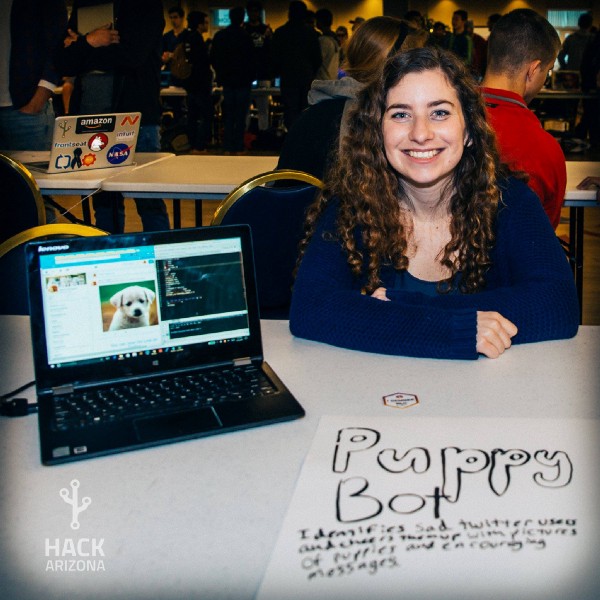 amazon
intuit
frontseat
NASA
lenovo
Puppy
Bot
Identifies sad twitter users
and cheers them up with pictures
of puppies and encouraging
messages.
HACK
ARIZONA